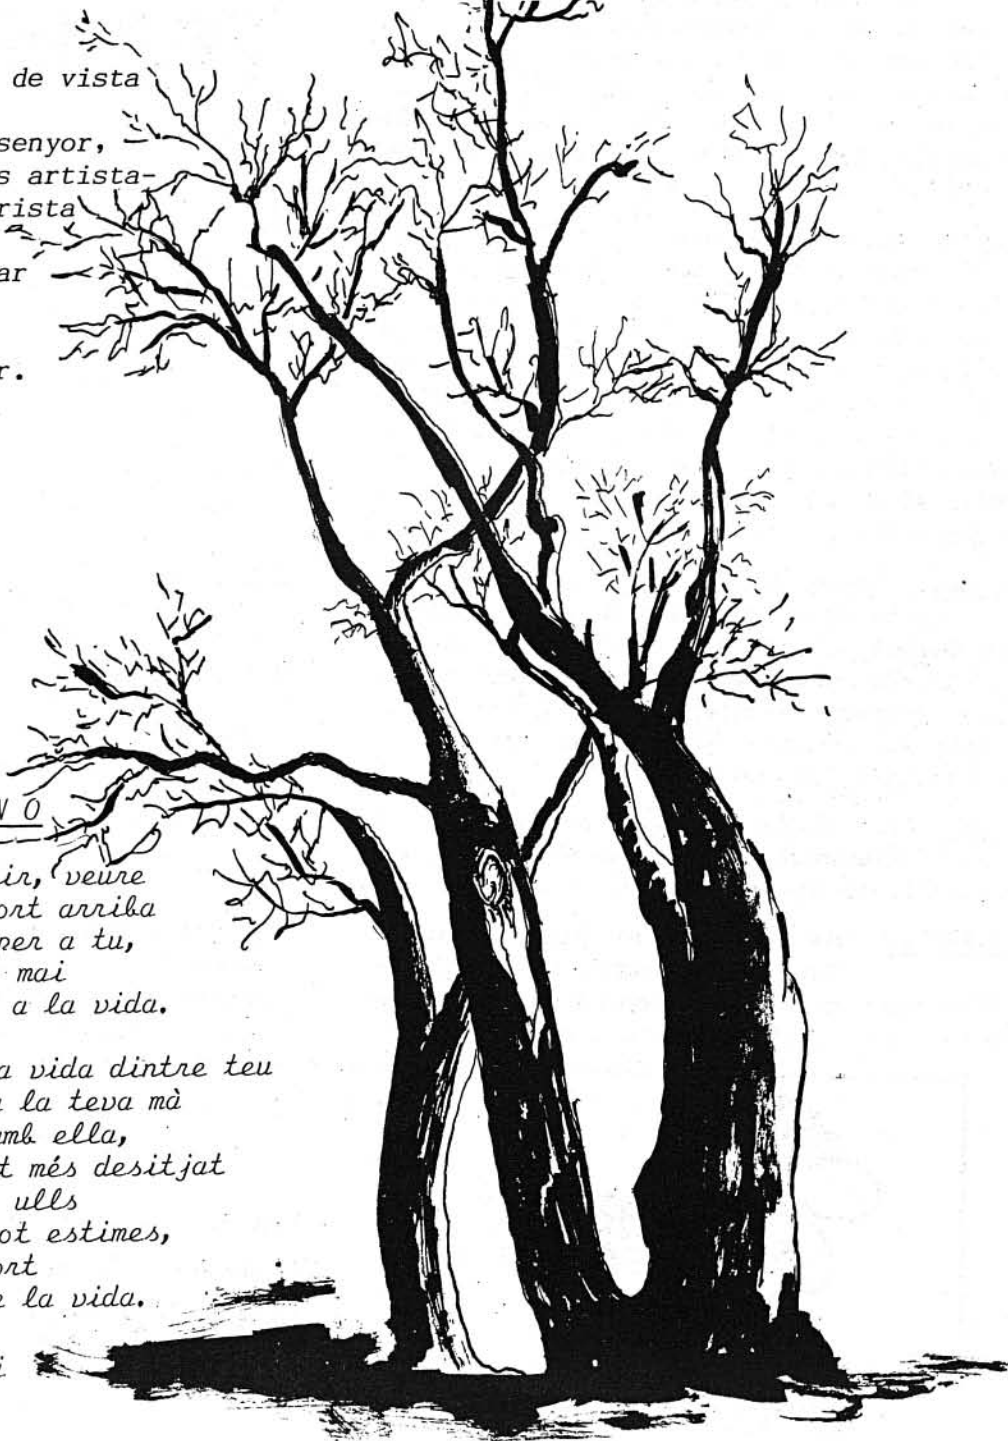 de vista
senyor,
s artista-
rista
a
ar
r.
N O
ir, veure
ort arriba
per a tu,
mai
a la vida.
a vida dintre teu
a la teva mà
amb ella,
t més desitjat
ulls
ot estimes,
ort
e la vida.
i